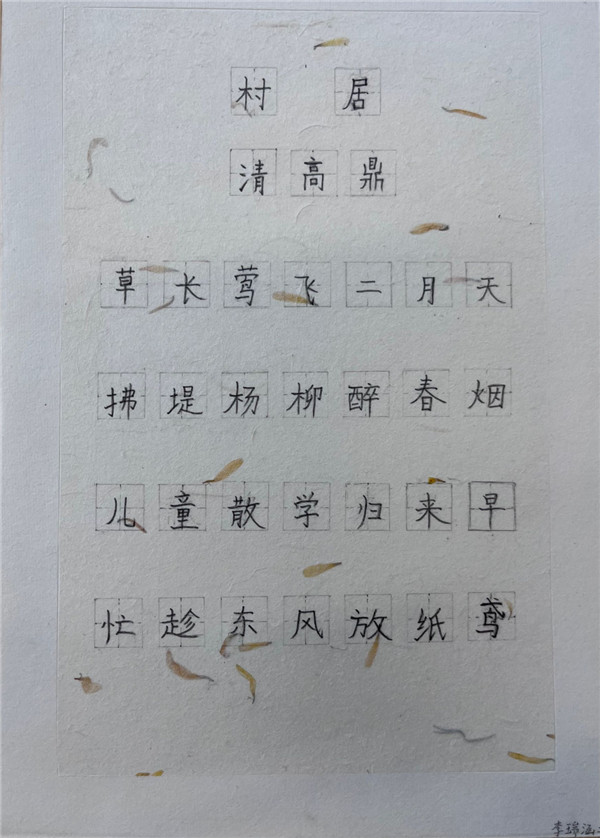 村居
清高鼎
草长莺飞二月天
拂堤杨柳醉春烟
儿童散学归来早
忙趁东风放纸鸢
李瑞涵